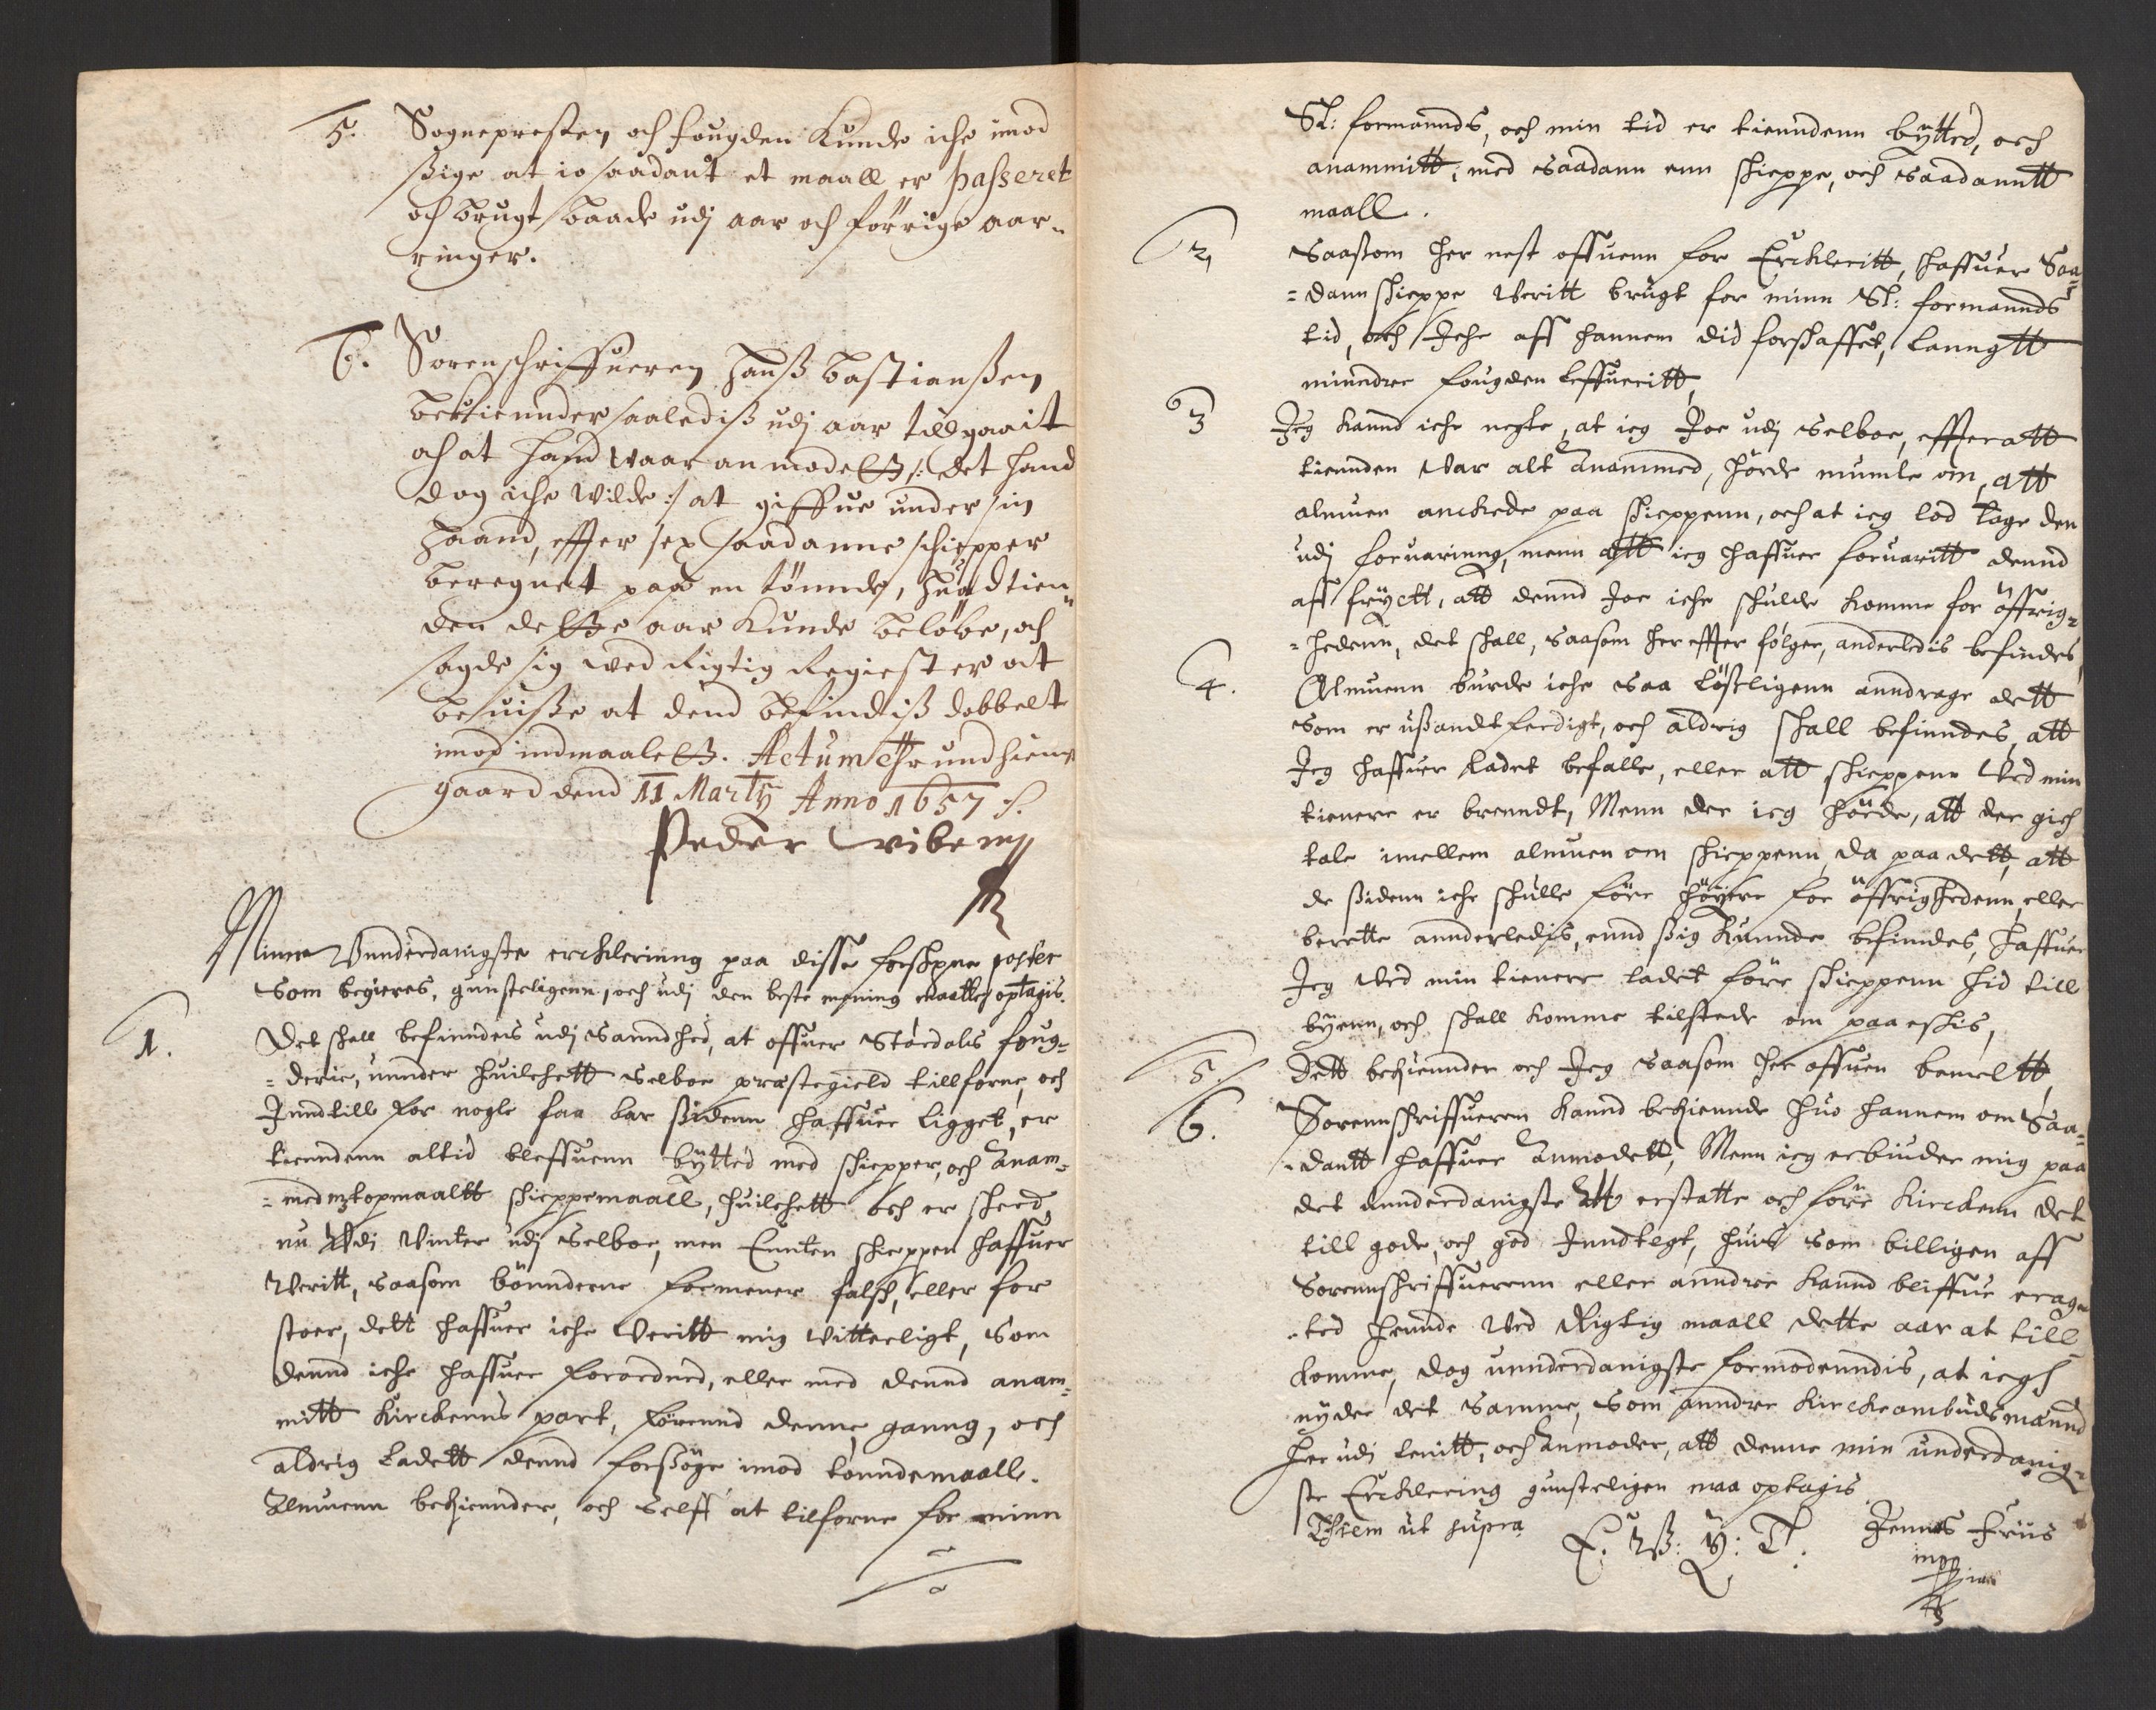 5. Sognepresten och fougden Kunde iche imod
sige at io saadant et maall er passeret
och brugt baade udj aar och förrige aar¬
ringer.
6. Sorenschriffueren Hanß Bastianßen
bekiennder saalediß udj aar tillgaait
och at hand waar anmodett /: det hand
dog iche wilde :/ at giffue under sin
Haand, effter sex saadanne schiepper
beregnet paa en tönnde, huad tien¬
den dette aar Kunde belöbe, och
sagde sig wed Rigtig Regiester at
beuisse at dend befindiß dobbelt
imod indmaalett. Actum Thrundhiems
gaard dend 11 Martÿ Anno 1657 /.
Peder Wibe mp
Minne Unnderdanigste erckleringg paa disse forschrne poster
som begieres, gunsteligenn, och udj den beste mening maatte optagis.
1. Det shall befinndes udj sanndhed, at offuer Stördals foug¬
=derie, unnder huilchett Selboe præstegield tillforne, och
Inndtill for nogle faa aar sidenn haffuer ligget, er
tienndenn altid bleffuenn bÿtted med schiepper, och Anam¬
=med topmaaltt schieppemaall, huilchett och er scheed,
nu Udi Vinter udj Selboe, men Enntten schieppen haffuer
Veritt, saasom bönnderne formener falsch, eller for
stoer, dett haffuer iche Veritt mig vitterligt, som
dennd iche haffuer forordned, eller med dennd anam¬
mitt Kirckenns part, förennd denne ganng, och
aldrig ladett dennd forsöge imod tönndemaall.
Almuenn bekiennder, och selff at tilforne for minn
Sl: formannds, och min tid er tienndenn bÿtted, och
anammitt, med saadann enn schieppe, och saadanntt
maall.
2, Saasom her nest offuenn for Erckleritt, haffuer Saa
=dann schieppe Veritt brugt for minn Sl: formannds
tid, och Iche aff hannem did forschaffet, lanngtt
minndre fougden leffueritt,
3 Jeg kannd iche negte, at ieg Joe udj Selboe, effter att
tiennden var alt Anammed, hörde mumle om, att
almuen anckede paa schieppenn, och at ieg lod tage den
udj foruaringg, menn att ieg haffuer foruaritt dennd
aff fryctt, att dennd Joe iche schulde komme for öffrig¬
=hedenn, det shall, saasom her effter fölger, anderledis befindes,
4. Almuenn burde iche saa löseligenn anndrage dett
som er usandtferdigt, och aldrig shall befinndes, att
Jeg haffuer ladet befalle, eller att schieppenn Ved min
tienere er brenndt, Menn der ieg hörde, att der gich
tale imellem almuen om schieppenn, da paa dett, att
de sidenn iche schulle före höyere for öffrighedenn, eller
berette annderledis, ennd sig kunnde befindes, haffuer
Jeg Ved min tienere ladet före schieppenn hid till
byenn, och shall komme tilstede om paa eskis,
5. Dett bekiennder och Jeg saasom her offuen bemeltt,
6. Sorennschriffueren kannd bekiennde huo hannem om Saa¬
=dantt haffuer Anmodett, Menn ieg erbiuder mig paa
det unnderdanigste Att erstatte och före Kirckenn det
till gode, och god Inndtegt, huis som billigen aff
Sorennschriffuerenn eller anndre kannd bliffue eragt
=ted hennde Ved Rigtig maall dette aar at till
komme, dog unnderdanigste formodenndis, at iegh
nyder det samme, som anndre Kirckeombudsmænnd
her udj lenitt, och Anmoder, att denne min underdanig¬
ste Erckleringg gunsteligen maa optagis
Thiem ut supra E: W: Y: T: Jenns Friis
mpp